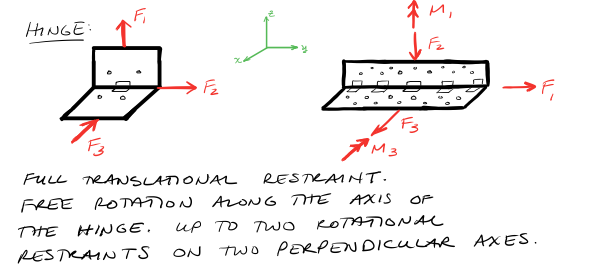 HINGE:
F1
F2
F3
z
y
x
M1
F2
F1
F3
M3
FULL TRANSLATIONAL RESTRAINT.
FREE ROTATION ALONG THE AXIS OF
THE HINGE. UP TO TWO ROTATIONAL
RESTRAINTS ON TWO PERPENDICULAR AXES.